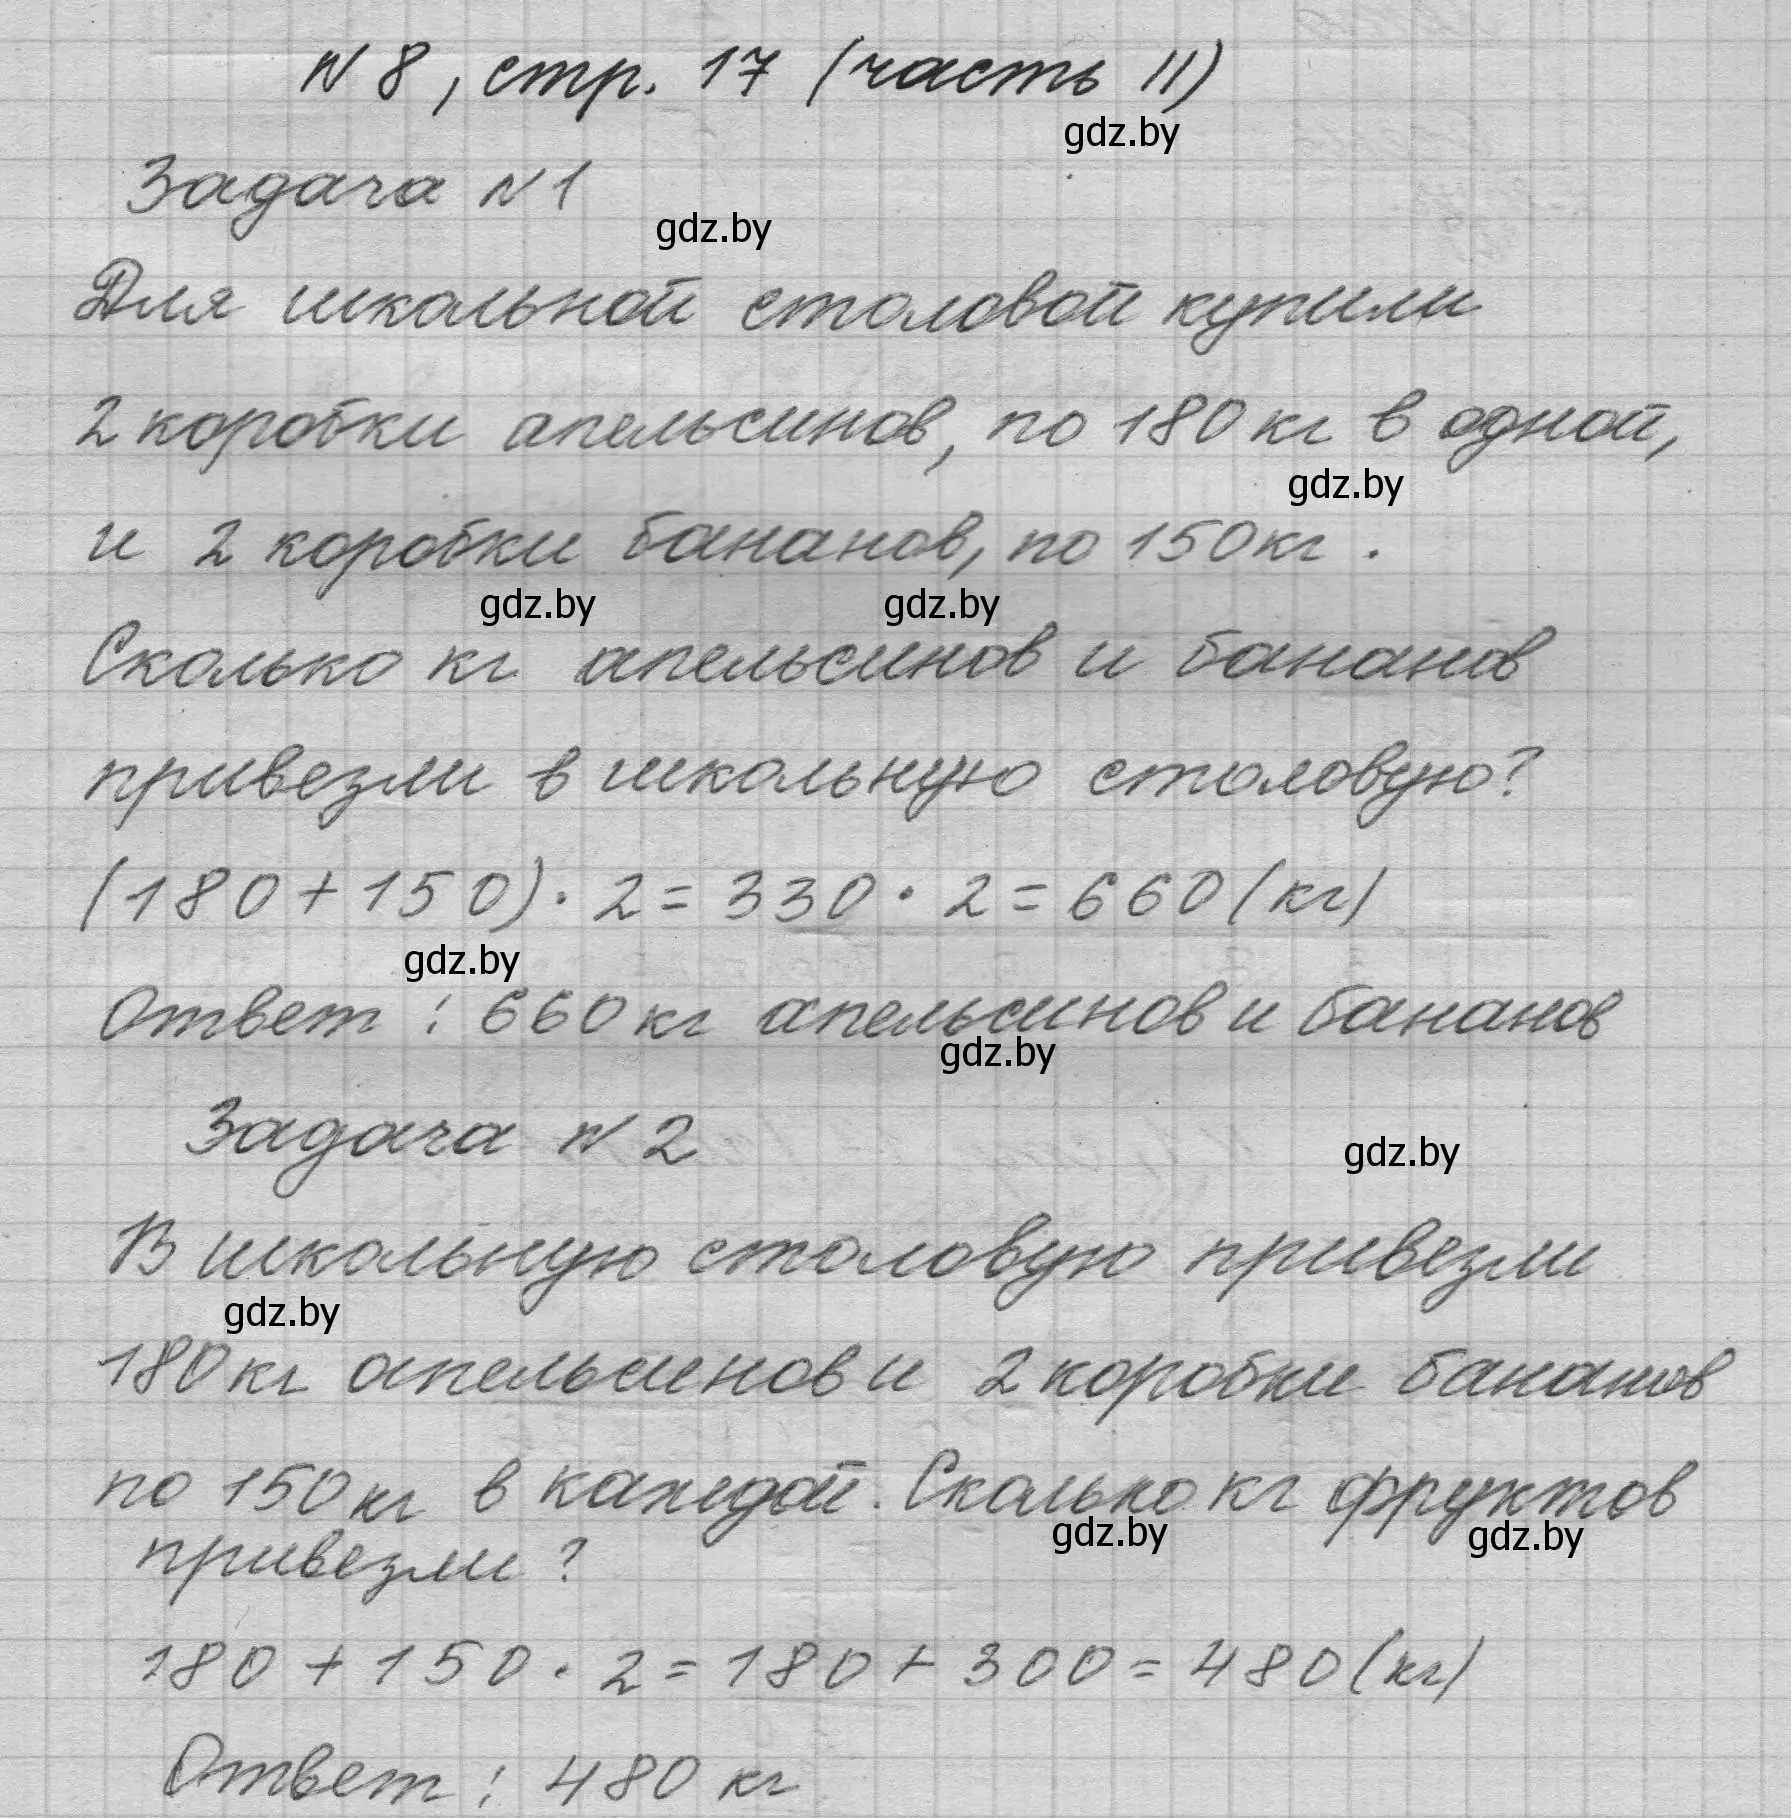 № 8, стр. 17 (часть II)
gdz.by
Задача №1
gdz.by
Для школьной столовой купили
2 коробки апельсинов, по 180 кг в одной,
gdz.by
и 2 коробки бананов, по 150 кг.
gdz.by gdz.by
Сколько кг апельсинов и бананов
привезли в школьную столовую?
(180+150)·2=330·2=660(кг)
gdz.by
Ответ: 660 кг апельсинов и бананов
gdz.by
Задача №2
gdz.by
В школьную столовую привезли
gdz.by
180 кг апельсинов и 2 коробки бананов
по 150 кг в каждой. Сколько кг фруктов
gdz.by gdz.by
привезли?
180+150·2=180+300=480(кг)
Ответ: 480 кг